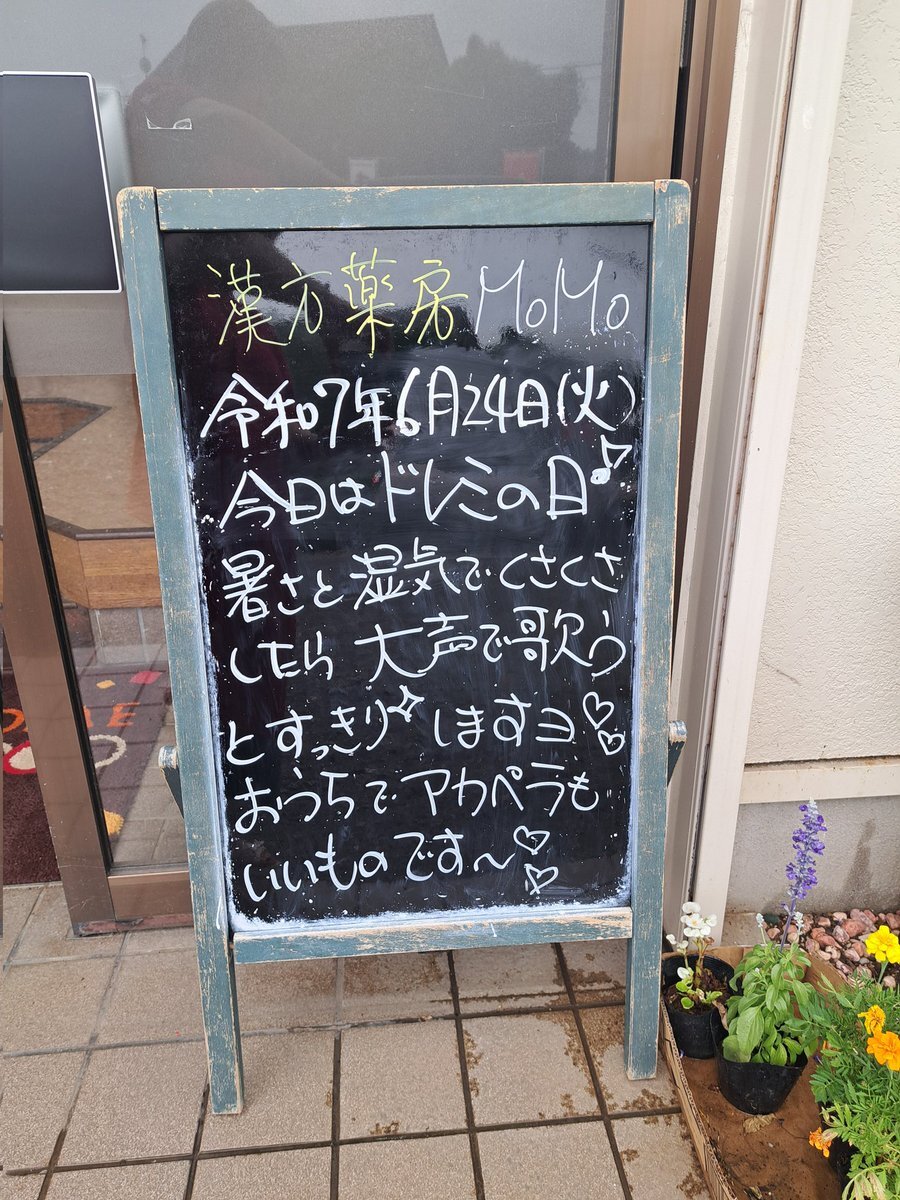 漢方薬房 MoMo
令和7年6月24日(火)
今日はドレミの日♪
暑さと湿気でくさくさ
したら 大声で歌う
とすっきり✧しますヨ♡♡
おうちでアカペラも
いいものです〜♡♡